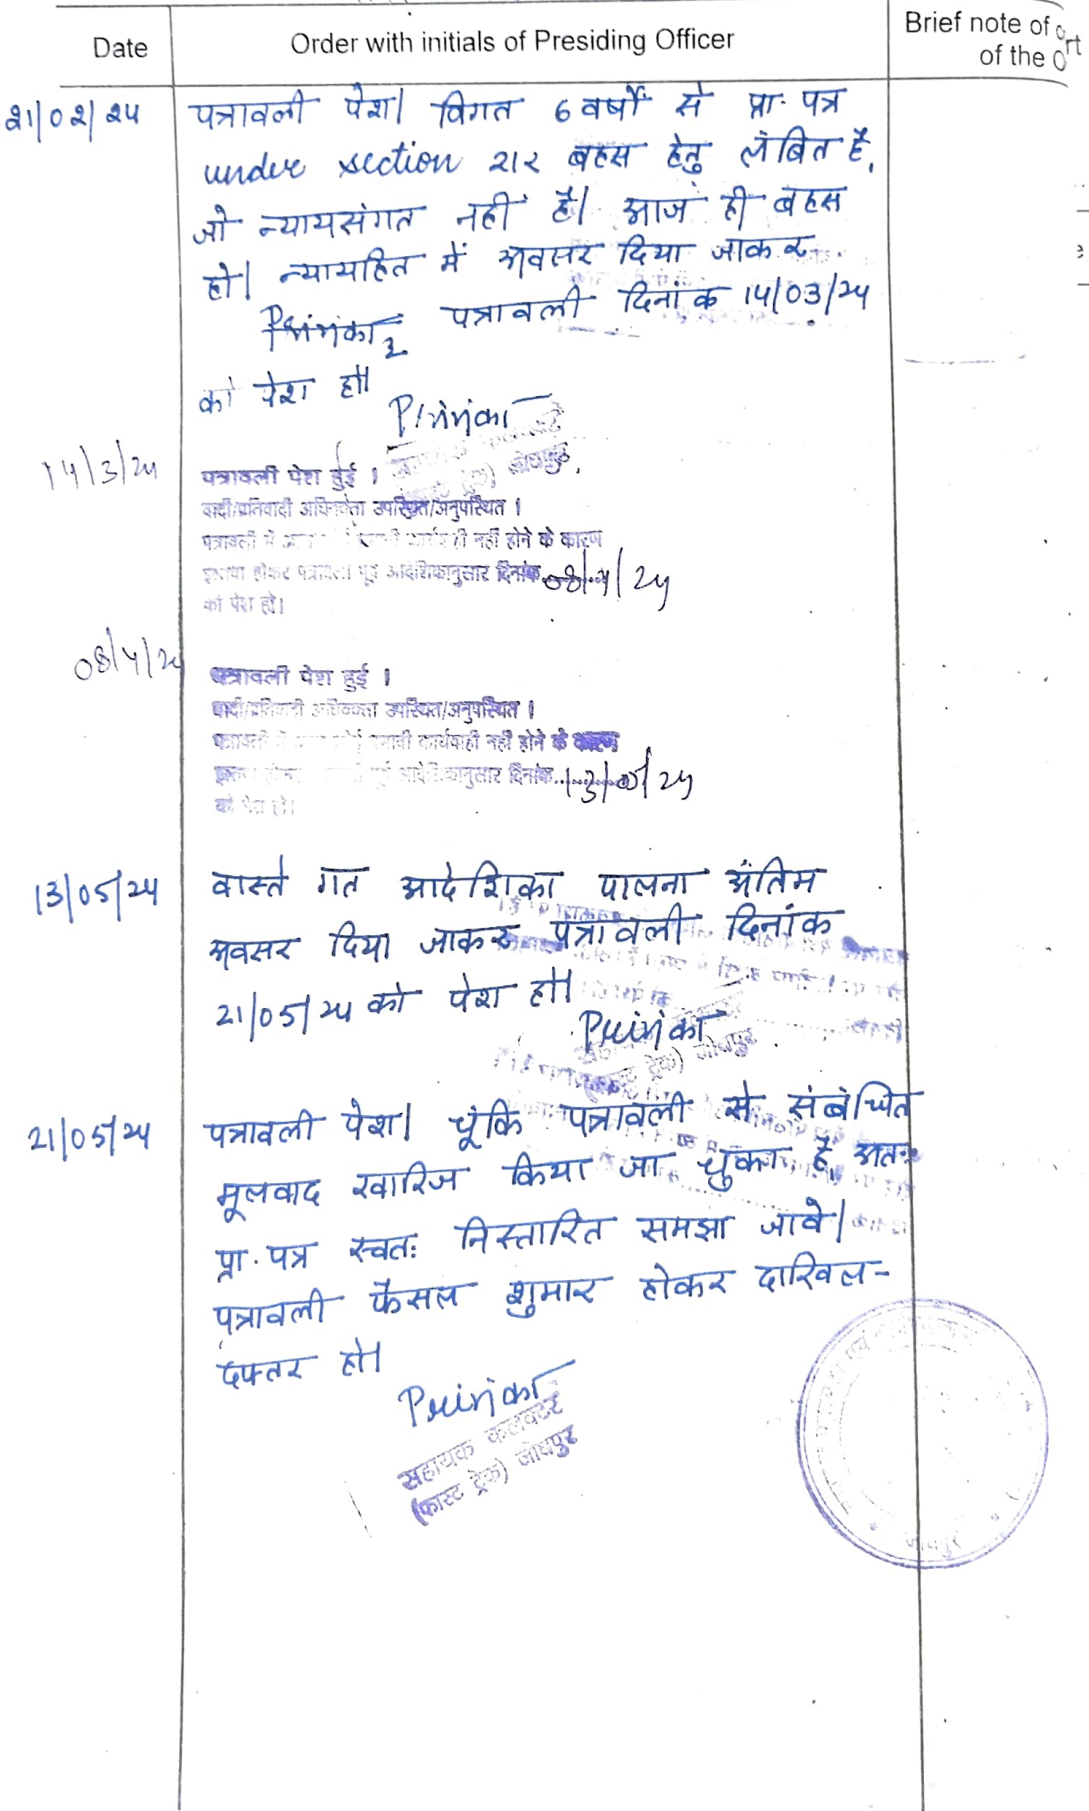 Date
Order with initials of Presiding Officer
Brief note of
of the
21/02/24
पत्रावली पेश। विगत 6 वर्षों से प्रा. पत्र
under section 212 बहस हेतु लंबित है,
जो न्यायसंगत नहीं है। आज ही बहस
हो। न्यायहित में अवसर दिया जाकर
पत्रावली दिनांक 14/03/24
को पेश हो।
Priyanka
14/3/24
पत्रावली पेश हुई ।
वादी/प्रतिवादी अधिवक्ता उपस्थित/अनुपस्थित ।
पत्रावली में नहीं होने के कारण
होकर आदेशिकानुसार दिनांक 08/4/24
को पेश हो।
08/4/24
पत्रावली पेश हुई ।
वादी/प्रतिवादी अधिवक्ता उपस्थित/अनुपस्थित ।
पत्रावली कार्यवाही नहीं होने के कारण
आदेशिकानुसार दिनांक 13/05/24
को पेश हो।
13/05/24
वास्ते गत आदेशिका पालना अंतिम
अवसर दिया जाकर पत्रावली दिनांक
21/05/24 को पेश हो।
Priyanka
ट्रेक) जोधपुर
21/05/24
पत्रावली पेश। चूंकि पत्रावली से संबंधित
मूलवाद खारिज किया जा चुका है, अतः
प्रा. पत्र स्वतः निस्तारित समझा जावे।
पत्रावली फैसल शुमार होकर दाखिल-
दफ्तर हो।
Priyanka
सहायक कलक्टर
(फास्ट ट्रेक) जोधपुर
जोधपुर